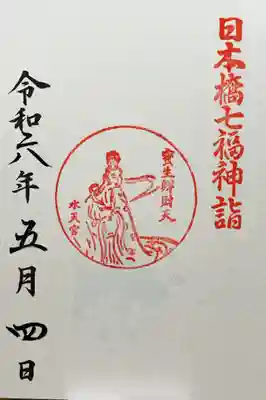 日本橋七福神詣
寳生辨財天
水天宮
令和六年五月四日